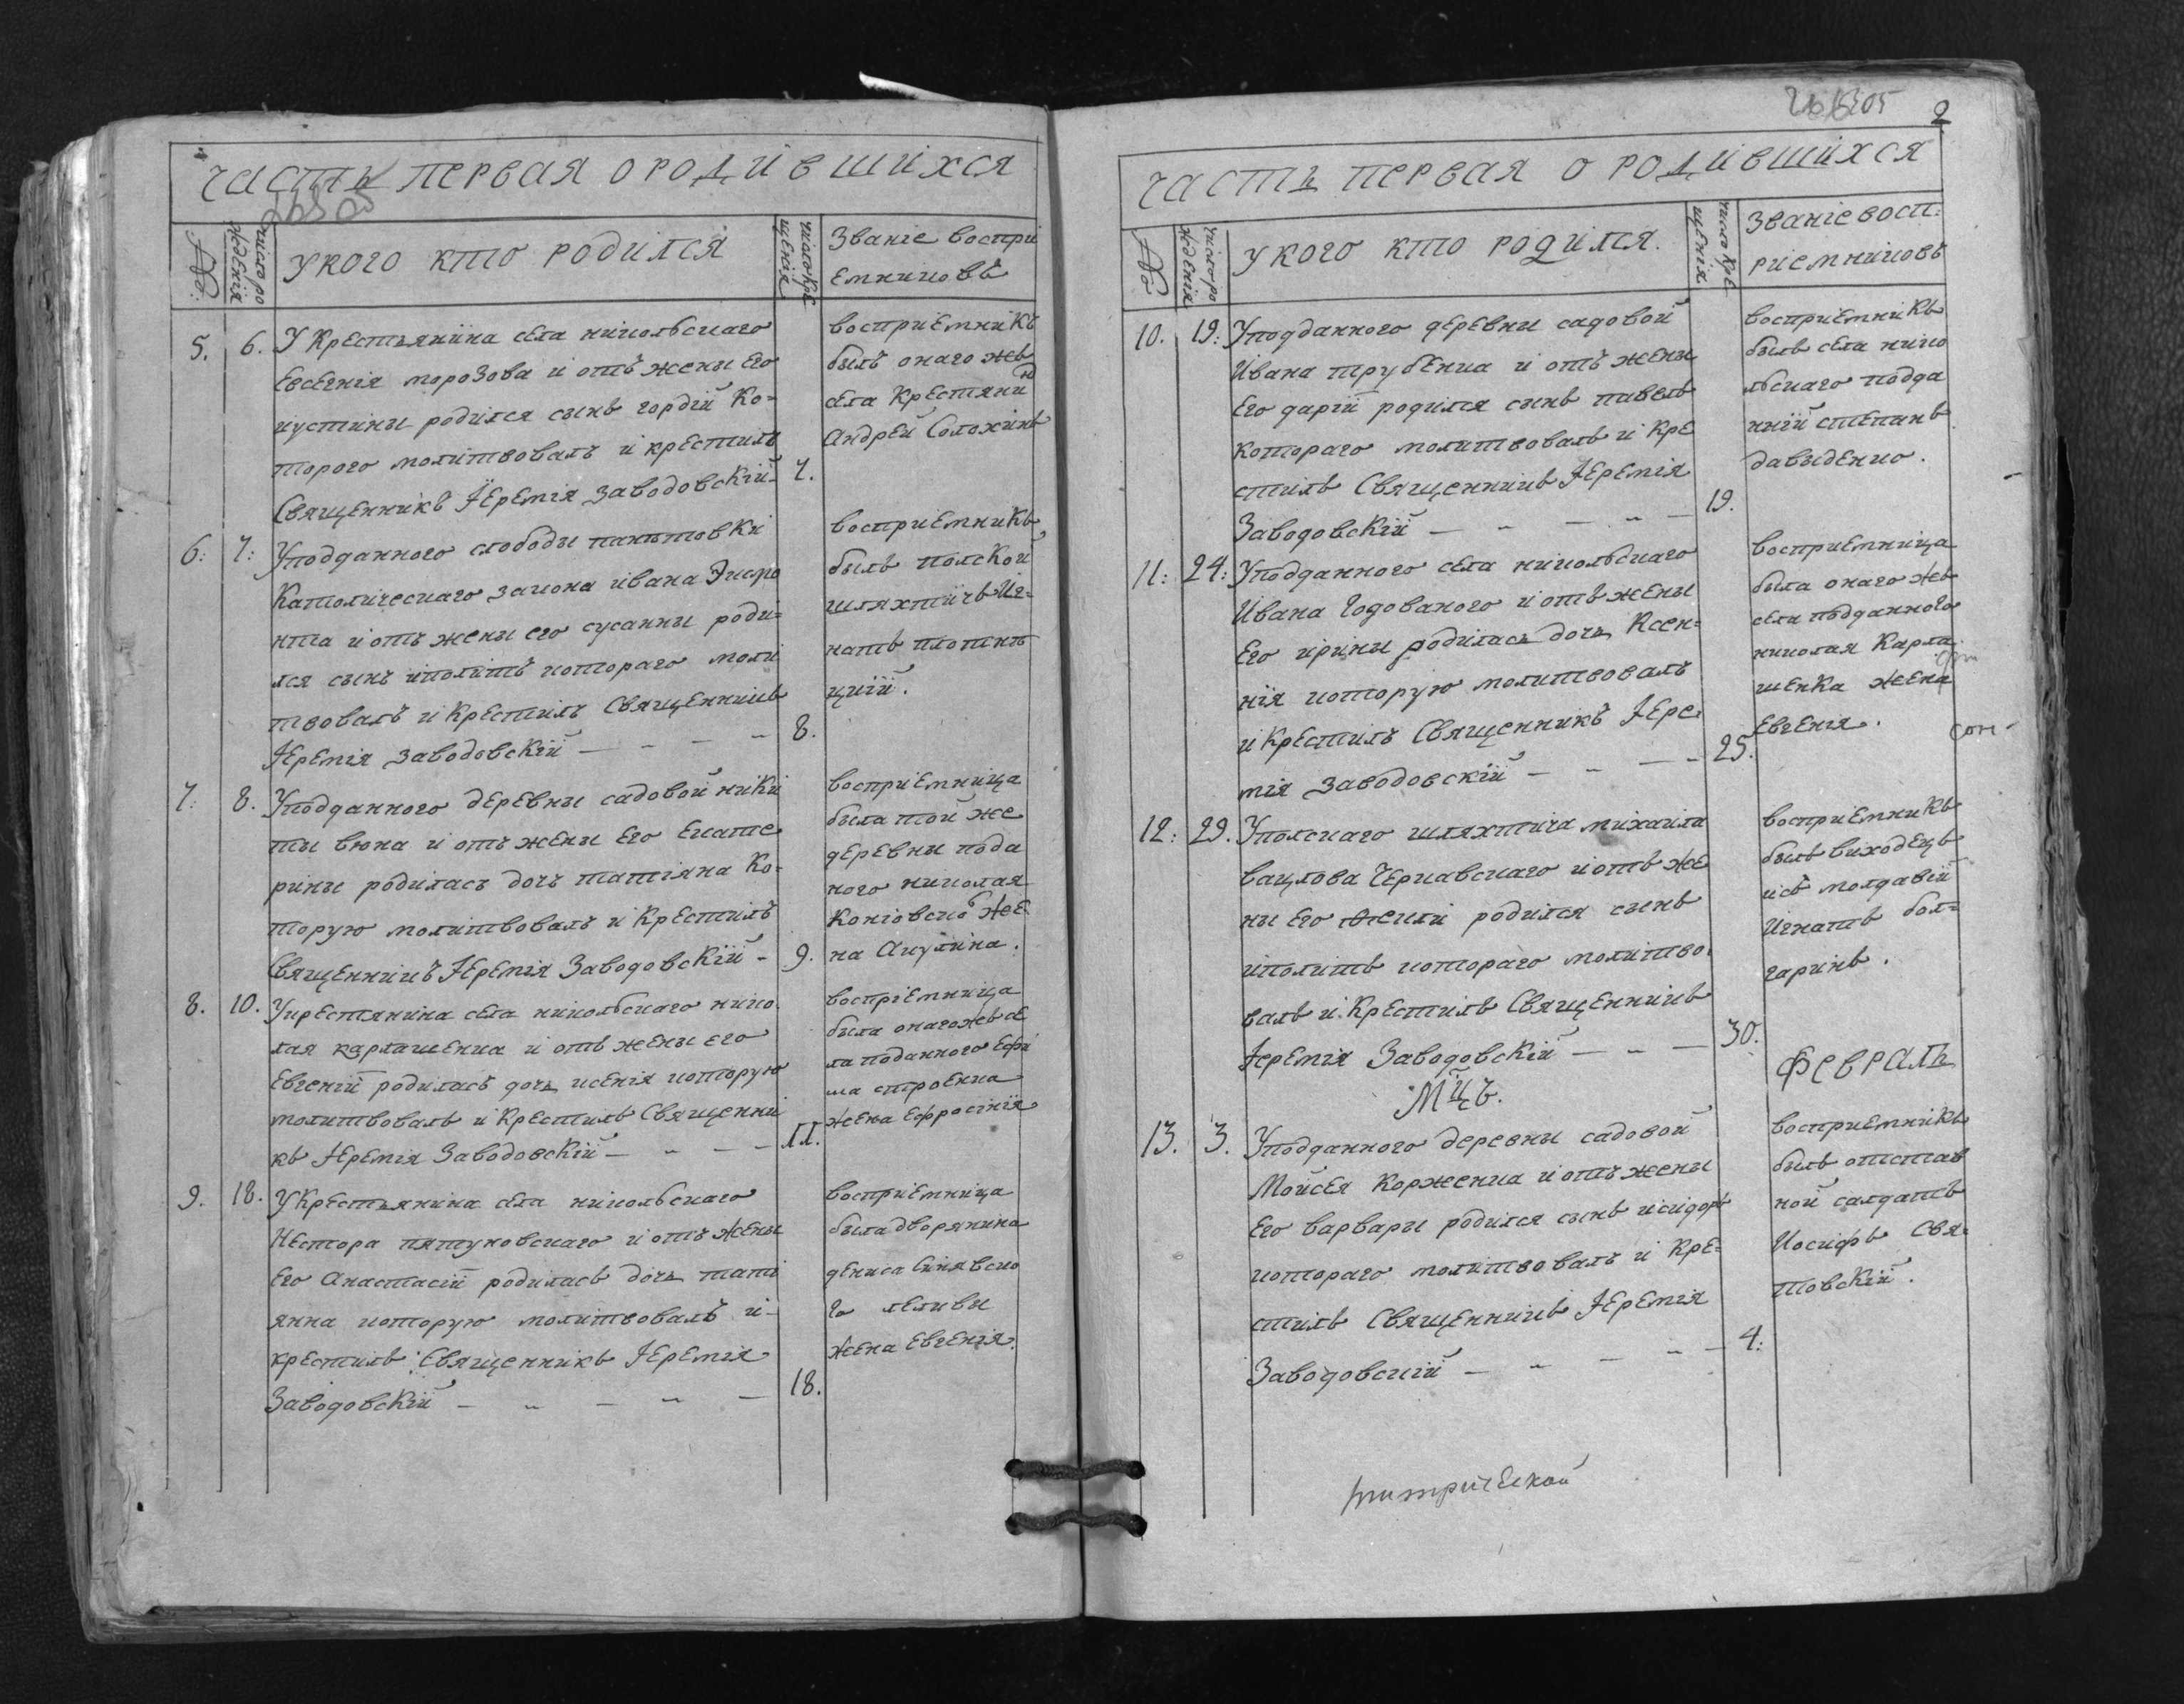 Часть первая о родившихся
№:
число рождения
у кого кто родился
число крещения
Званіе воспри
емниковъ
5.
6.
У крестьянина села никольскаго
Евсегнія морозова и отъ жены его
иустины родился сынъ гордій ко=
торого молитвовалъ и крестилъ
Священникъ Іеремія Заводовскій
7.
восприемникъ
былъ оного жъ
села крестянин
Андрей Солохинъ
6:
7:
Уподданного слободы
католическаго закона ивана
нта и отъ жены его сусанны роди=
лся сынъ иполитъ котораго моли
твовалъ и крестилъ Священникъ
Іеремія Заводовскій
8.
восприемникъ
былъ полской
шляхтичъ Иг=
натъ
цкій.
7:
8.
Уподданного деревны садовой ники
ты вюна и отъ жены его Екате
рины родилась дочь татіяна ко=
торую молитвовалъ и крестилъ
Священникъ Іеремія Заводовскій
9.
восприемница
была той же
деревны пода
ного николая
коніовско же
на Акулина.
8.
10.
Укрестянина села никольскаго нико
лая карлашенка и отъ жены его
Евгеній родилась дочь ксенія которую
молитвовалъ и крестилъ Священни
къ Іеремія Заводовскій
11.
воспріемница
была оногожъ се
ла поданного Ефи
ма строенка
жена Ефросинія
9.
18.
У крестьянина села никольскаго
Нестора пятуновскаго и отъ жены
Его Анастасій родилась дочь тати
янна которую молитвовалъ и
крестилъ Священникъ Іеремія
Заводовскій
18.
восприемница
была дворянина
дениса Синявско
го
жена Евгенія.
2
Часть первая о родившихся
№
число рождения
у кого кто родился.
число крещения
Званіе восп:
риемниковъ
10.
19:
Уподданного деревны садовой
Ивана трубенка и отъ жены
Его дарій родился сынъ павелъ
котораго молитвовалъ и кре
стилъ Священникъ Іеремія
Заводовскій
19.
восприемникъ
былъ села нико
льскаго подда
нній степанъ
давыденко.
11:
24:
Уподданного села никольскаго
Ивана Годованого и отъ жены
Его ирины родилась дочь Ксен=
нія которую молитвовалъ
и крестилъ Священникъ Іере
мія Заводовскій
25.
восприемница
была оного жъ
села подданного
николая Карла
шенка жена
Евгенія.
12:
29.
Уполскаго шляхтича михаила
вацлова Чернавскаго и отъ же
ны его родился сынъ
иполитъ котораго молитво
валъ и крестилъ Священникъ
Іеремія Заводовскій
30.
восприемникъ
былъ виходецъ
изъ молдавій
Игнатъ бол=
гаринъ.
Мцъ.
Февраль
13.
3.
Уподданного деревны садовой
Мойсея Корженка и отъ жены
Его варвары родился сынъ исидоръ
котораго молитвовалъ и кре=
стилъ Священникъ Іеремія
Заводовскій
4:
восприемникъ
былъ отстав
ной салдатъ
Иосифъ Свя=
товскій.
митрической